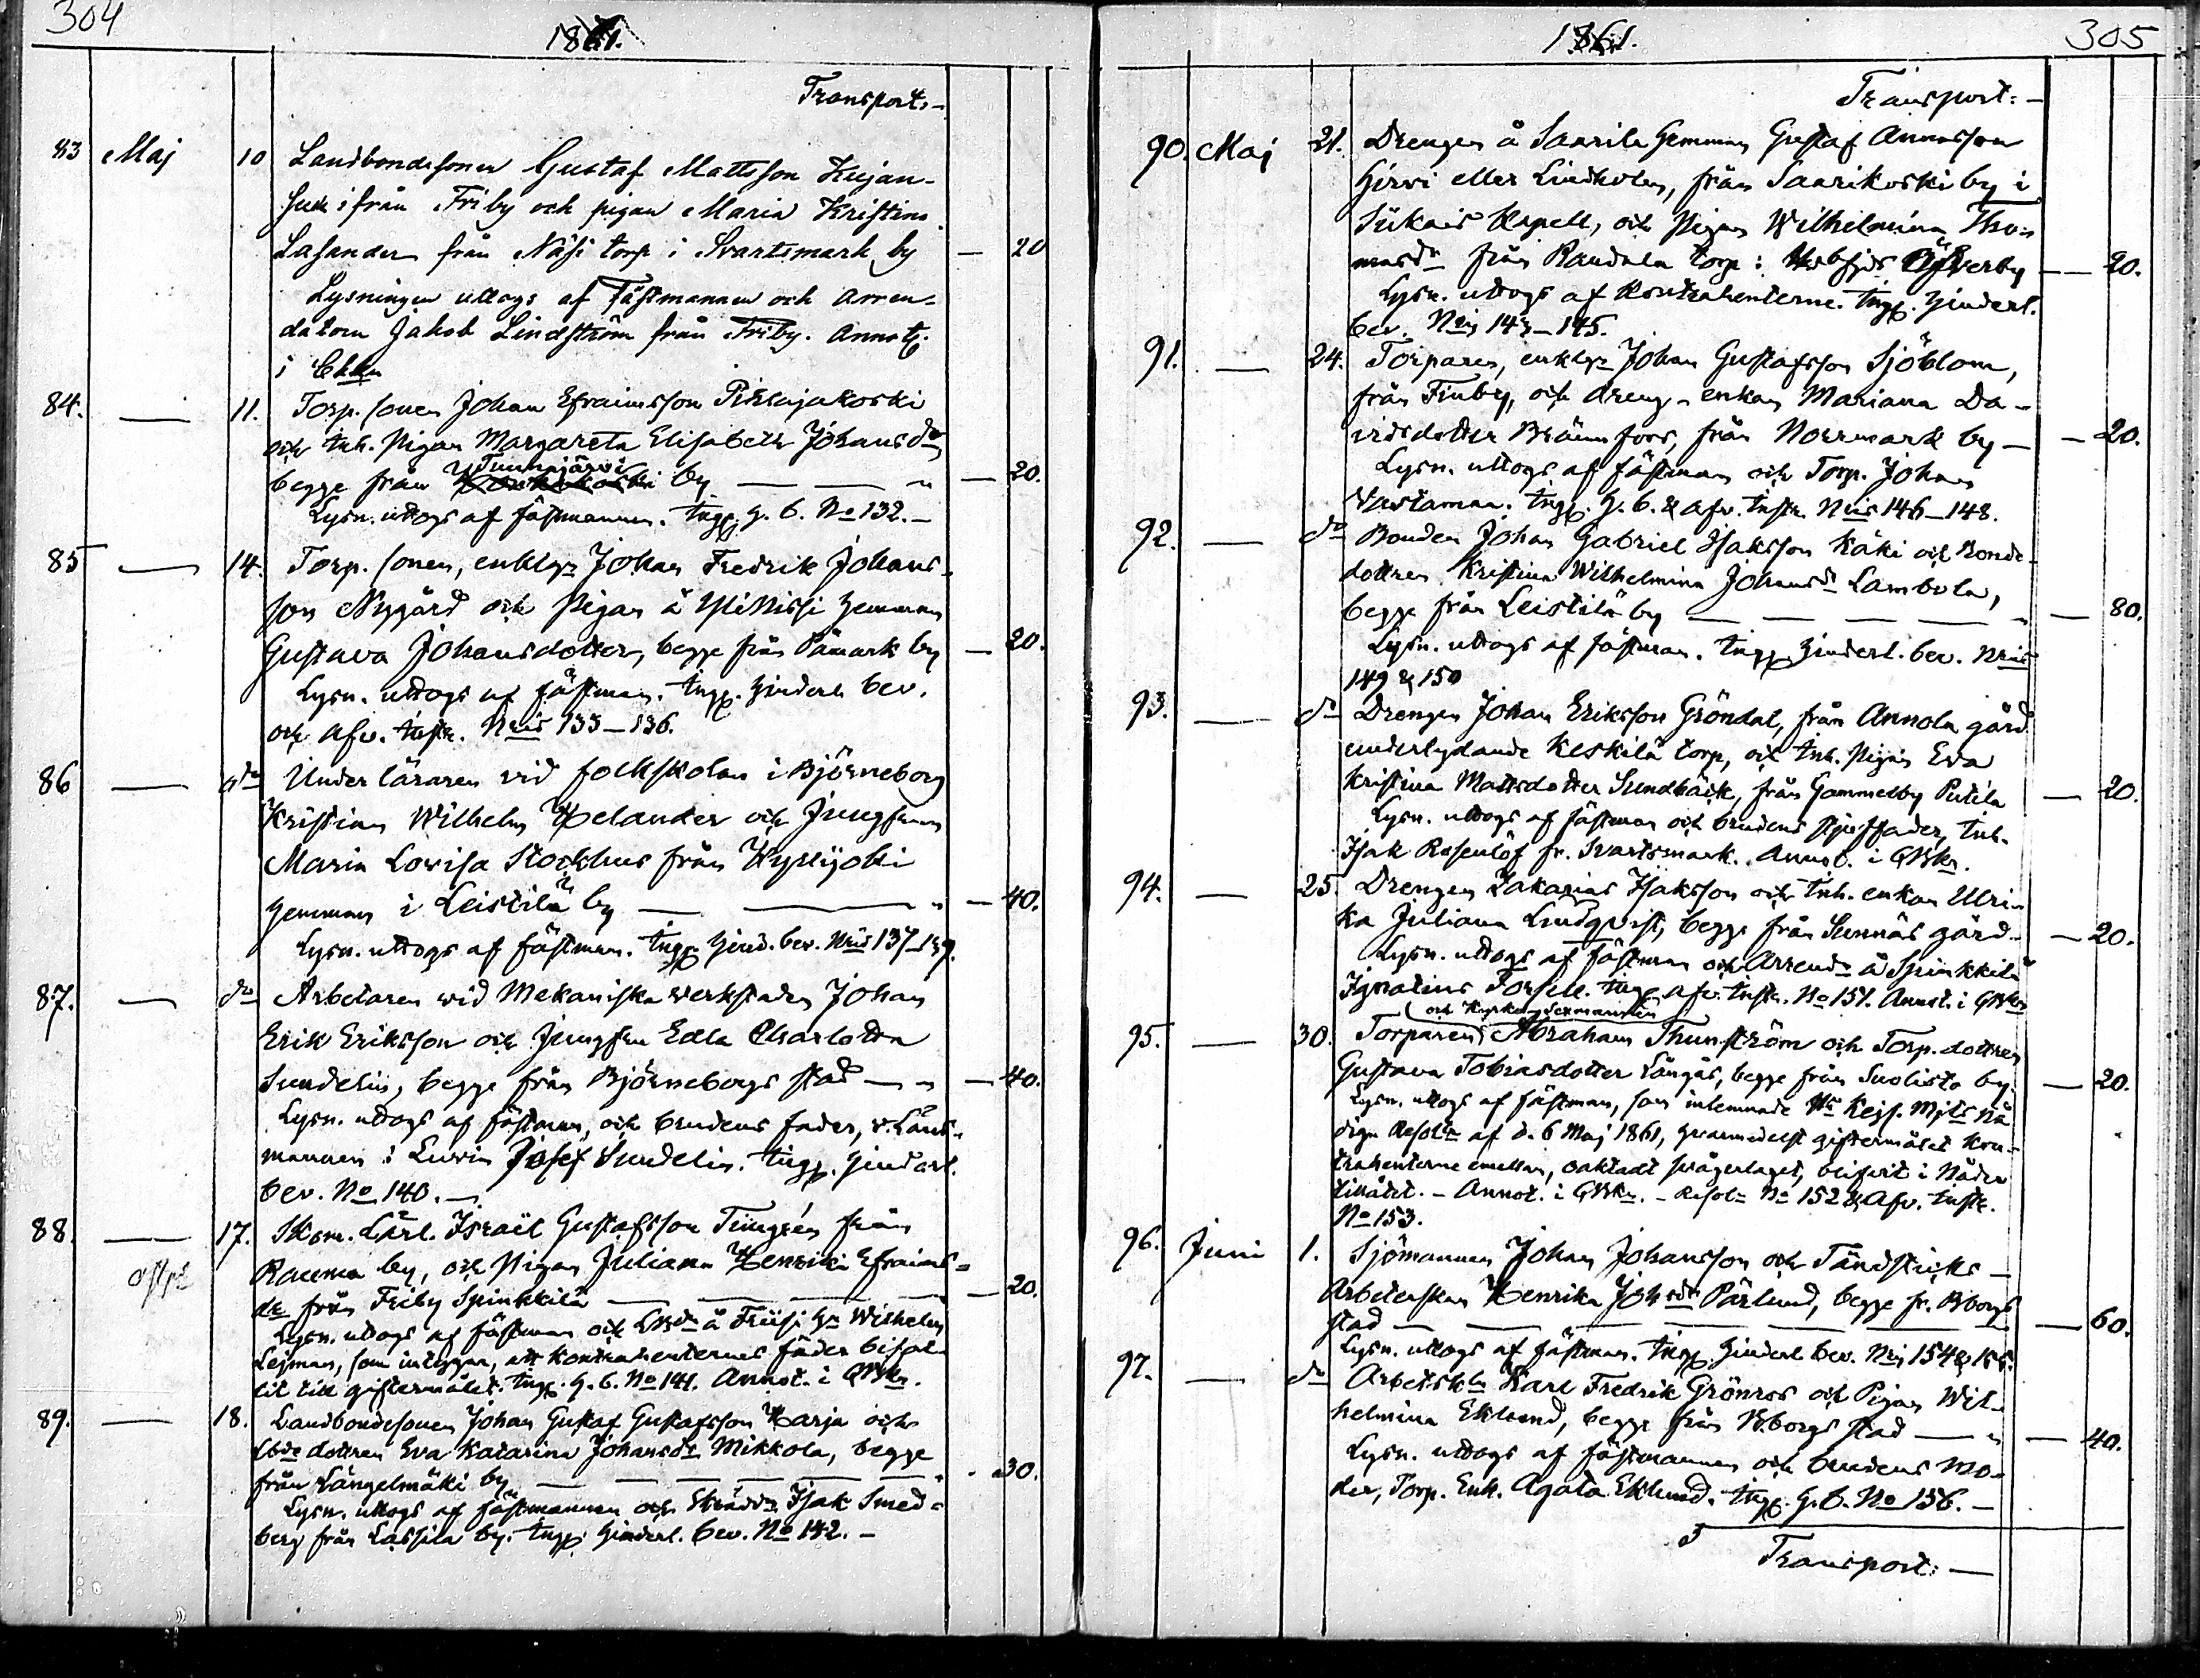 304
1861.
Transport.-
83 Maj 10 Landbondesonen Gustaf Mattsson Kujan-
ifrån Friby och pigan Maria Kristina
Lasander från Näsi torp i Svartsmark by — 20
Lysningen uttogs af Fästmannen och arren-
datorn Jakob Lindström från Friby. Annot.
i
84. — 11. Torp. sonen Johan Efraimsson Piksajakoski
och Inh. Pigan Margareta Elisabeth Johansdr
Tuunajärvi
begge från by — — " — 20.
Lysn. uttogs af fästmannen. Ingg. H. b. No 132.-
85 — 14. Torp. sonen, enklgn Johan Fredrik Johans-
son Nygård och Pigan å Yli Nissi hemman
Gustava Johansdotter, begge från Påmark by — 20.
Lysn. uttogs af fästman. Ingg. Hinderl. bev.
och Afv. Instr. Nris 133–136.
86 — do Underläraren vid folkskolan i Björneborg
Kristian Wilhelm Helander och Jungfrun
Maria Lovisa Stockhus från Kyläjoki
hemman i Leistilä by — — " — 40.
Lysn. uttogs af fästman. Ingg. Hind. bev. Nris 137–139.
87. — do Arbetaren wid Mekaniska verkstaden Johan
Erik Eriksson och Jungfru Edla Charlotta
Sundelin, begge från Björneborgs stad — " — 40.
Lysn. uttogs af fästman, och brudens fader, v. Läns-
mannen i Luvia Josef Sundelin. Ingg. Hinderl.
bev. No 140.—
88. — 17. Skom. Lärl. Israël Gustafsson Tungrén från
Rauma by, och Pigan Juliana Henrika Efraims-
dr från Friby Spinkkilä — — — — 20.
Lysn. uttogs af fästman och Lbdn å Friisi Hn Wilhelm
Lejman, som intygar, att Kontrahenternes fäder bifal-
lit till giftermålet. Ingg. H. b. No 141. Annot. i
89. — 18. Landbondesonen Johan Gustaf Gustafsson Harju och
Lbde dottren Eva Katarina Johansdr Mikkola, begge
från Längelmäki by — — — — " 30.
Lysn. uttogs af fästmannen och Skrädd. Isak Smed-
berg från Lassila by. Ingg. Hinderl. bev. No 142. –
1861.
305
Transport:-
90. Maj 21. Drengen å Saarila Hemman Gustaf Annasson
Hirvi eller Lindholm, från Saarikoski by i
Siikais Kapell, och Pigan Wilhelmina Tho-
masdr från Raudala torp i Ulfsby Öfverby — — 20.
Lysn. uttogs af Kontrahenterne. Ingg. Hinderl.
bev. Nris 143–145.
91. — 24. Torparen, enklgn Johan Gustafsson Sjöblom,
från Finby, och dreng-enkan Mariana Da-
vidsdotter Brännfors, från Norrmark by — — 20.
Lysn. uttogs af fästman och Torp. Johan
Vastaman. Ingg. H. b. & Afv. Instr. Nris 146–148.
92. — do Bonden Johan Gabriel Isaksson Käki och Bonde-
dottren Kristina Wilhelmina Johansdr Lambola,
begge från Leistilä by — — — — " — 80.
Lysn. uttogs af fästman. Ingg. Hinderl. bev. Nris
149 & 150
93. — do Drengen Johan Eriksson Gröndal, från Annola gård
underlydande Keskilä torp, och Inh. Pigan Eva
Kristina Mattsdotter Sundbäck, från Gammelby Putila — 20.
Lysn. uttogs af fästman och brudens stjuffader, Inh.
Isak Rosenlöf fr. Svartsmark. Annot. i
94. — 25 Drengen Zakarias Isaksson och Inh. enkan Ulri-
ka Juliana Lindqvist, begge från Sunnäs gård — — 20.
Lysn. uttogs af fästman och Arrend. å Spinkkilä
Ignatius Forsell. Ingg. Afv. Instr. No 151. Annot. i
och Kyrkogsexmannen
95. — 30. Torparen Abraham Thunström och Torp. dottren
Gustava Tobiasdotter Långås, begge från Suolisto by. — 20.
Lysn. uttogs af fästman, som inlemnade Hs Kejs. Mjts Nå-
diga Resoln af d. 6 Maj 1861, hvarmedelst giftermålet kon-
trahenterne emellan, oaktadt svågerlaget, blifvit i Nåder
tillåtet. – Annot. i – Resoln No 152 & Afv. Instr.
No 153.
96. Juni 1. Sjömannen Johan Johansson och Tändsticks-
Arbeterskan Henrika Johsdr Pärlund, begge fr. Bborgs
stad — — — — — — 60.
Lysn. uttogs af fästman. Ingg. Hinderl. bev. Nris 154 & 155.
97. — do Arbetsk. Karl Fredrik Grönros och Pigan Wil-
helmina Eklund, begge från Bborgs stad — " — 40.
Lysn. uttogs af fästmannen och brudens mo-
der, Torp. Enk. Agata Eklund. Ingg. H. b. No 156. –
Transport: —